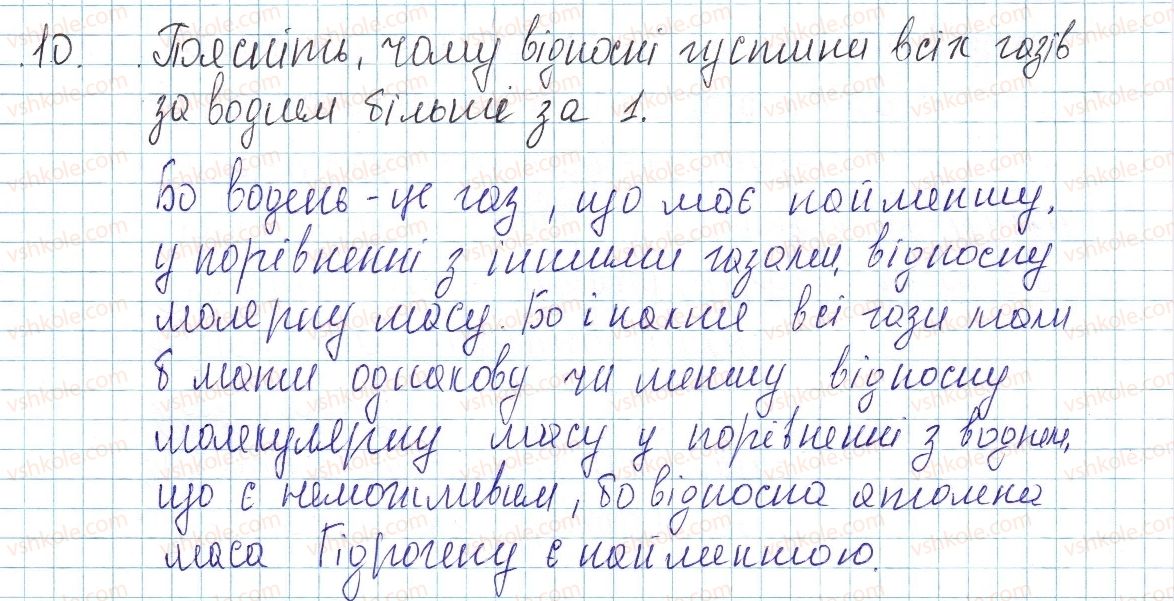 10. Поясніть, чому відносні густини всіх газів
за воднем більші за 1.
Бо водень - це газ, що має найменшу,
у порівненні з іншими газами, відносну
молярну масу. Бо інакше всі гази мали
б мати однакову чи меншу відносну
молекулярну масу у порівненні з воднем,
що є неможливим, бо відносна атомна
маса Гідрогену є найменшою.